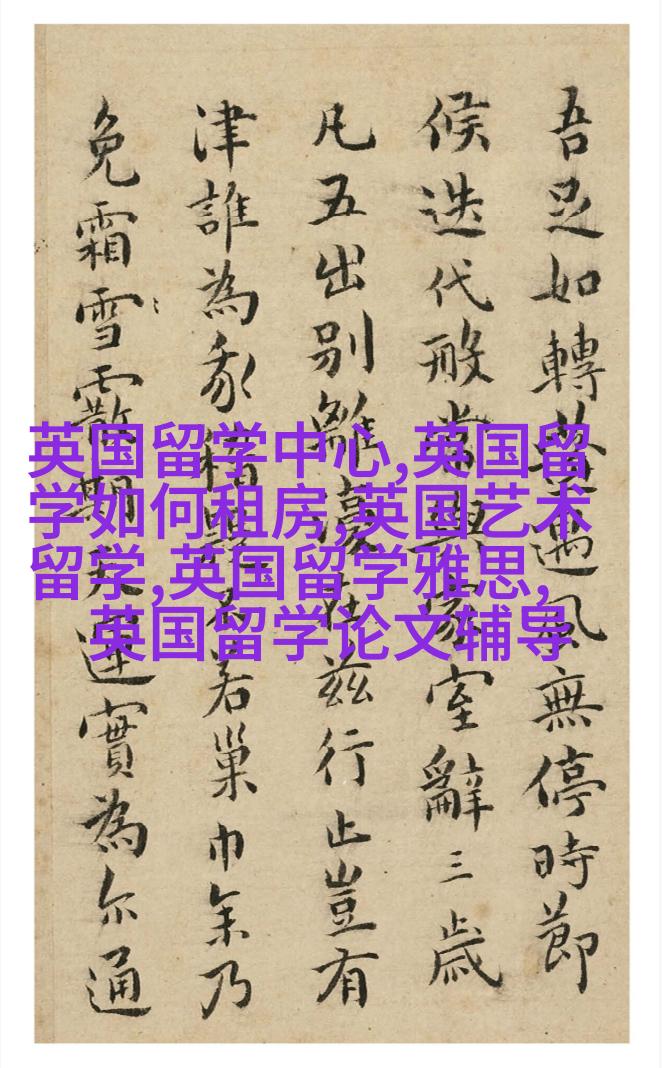 吾足如轉蓬遇風無停時節
候迭代般常與家室辭三歲
凡五出別離在茲行止豈有
津誰為若巢巾年乃
免霜雪霰期運實為尔通
英国留学中心,英国留
学如何租房,英国艺术
留学,英国留学雅思,
英国留学论文辅导